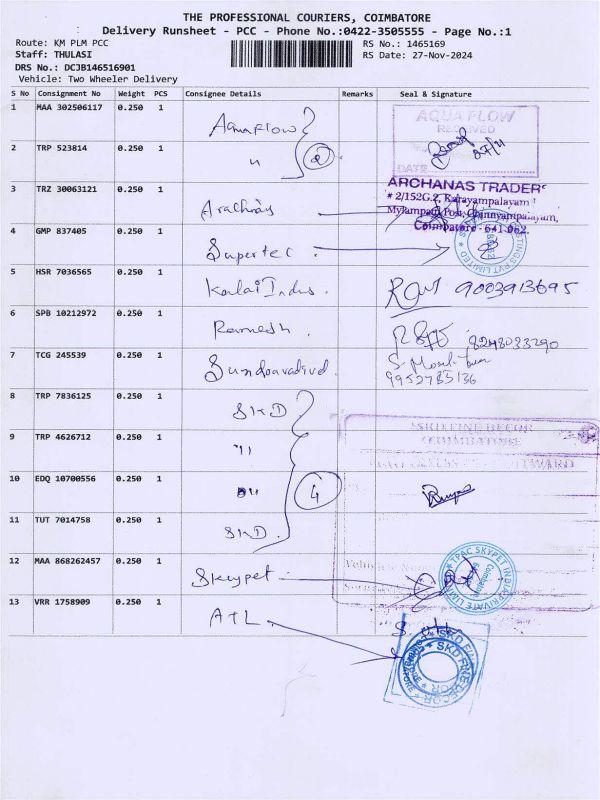 THE PROFESSIONAL COURIERS, COIMBATORE
Delivery Runsheet - PCC - Phone No.:0422-3505555 - Page No.:1
Route: KM PLM PCC
RS No.: 1465169
Staff: THULASI
RS Date: 27-Nov-2024
DRS No.: DCJB146516901
Vehicle: Two Wheeler Delivery
S No Consignment No Weight PCS Consignee Details Remarks Seal & Signature
1 MAA 302506117 0.250 1 Aquaflow
AQUA FLOW
RECEIVED
27/11
DATE
2 TRP 523814 0.250 1 " 2
3 TRZ 30063121 0.250 1
ARCHANAS TRADER
* 2/152G.2, Karayampalayam
Mylampatti Post, Chinniyampalayam,
Coimbatore - 641 062.
4 GMP 837405 0.250 1 Supertec.
5 HSR 7036565 0.250 1 Kalai Indus. 9003913695
6 SPB 10212972 0.250 1 Ramesh. 8248033290
7 TCG 245539 0.250 1 Sundaravadivel
9952785136
8 TRP 7836125 0.250 1 SKD
SKD FINE DECOR
COIMBATORE
9 TRP 4626712 0.250 1 "
INWARD
10 EDQ 10700556 0.250 1 " 4
11 TUT 7014758 0.250 1 SKD.
12 MAA 868262457 0.250 1 Skypet
TPAC SKYPET INDIA PRIVATE LIMITED
Coimbatore
13 VRR 1758909 0.250 1 ATL
SKD FINE DECOR